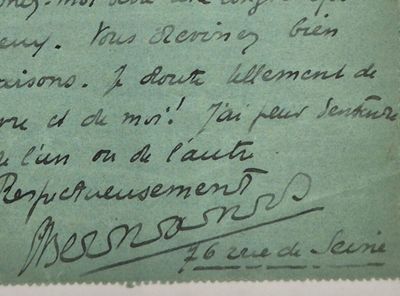 -moi
. Vous devinez bien
aisons. Je doute tellement de
et de moi! J'ai peur d'entendre
de l'un ou de l'autre
Respectueusement
Bernanos
76 rue de Seine